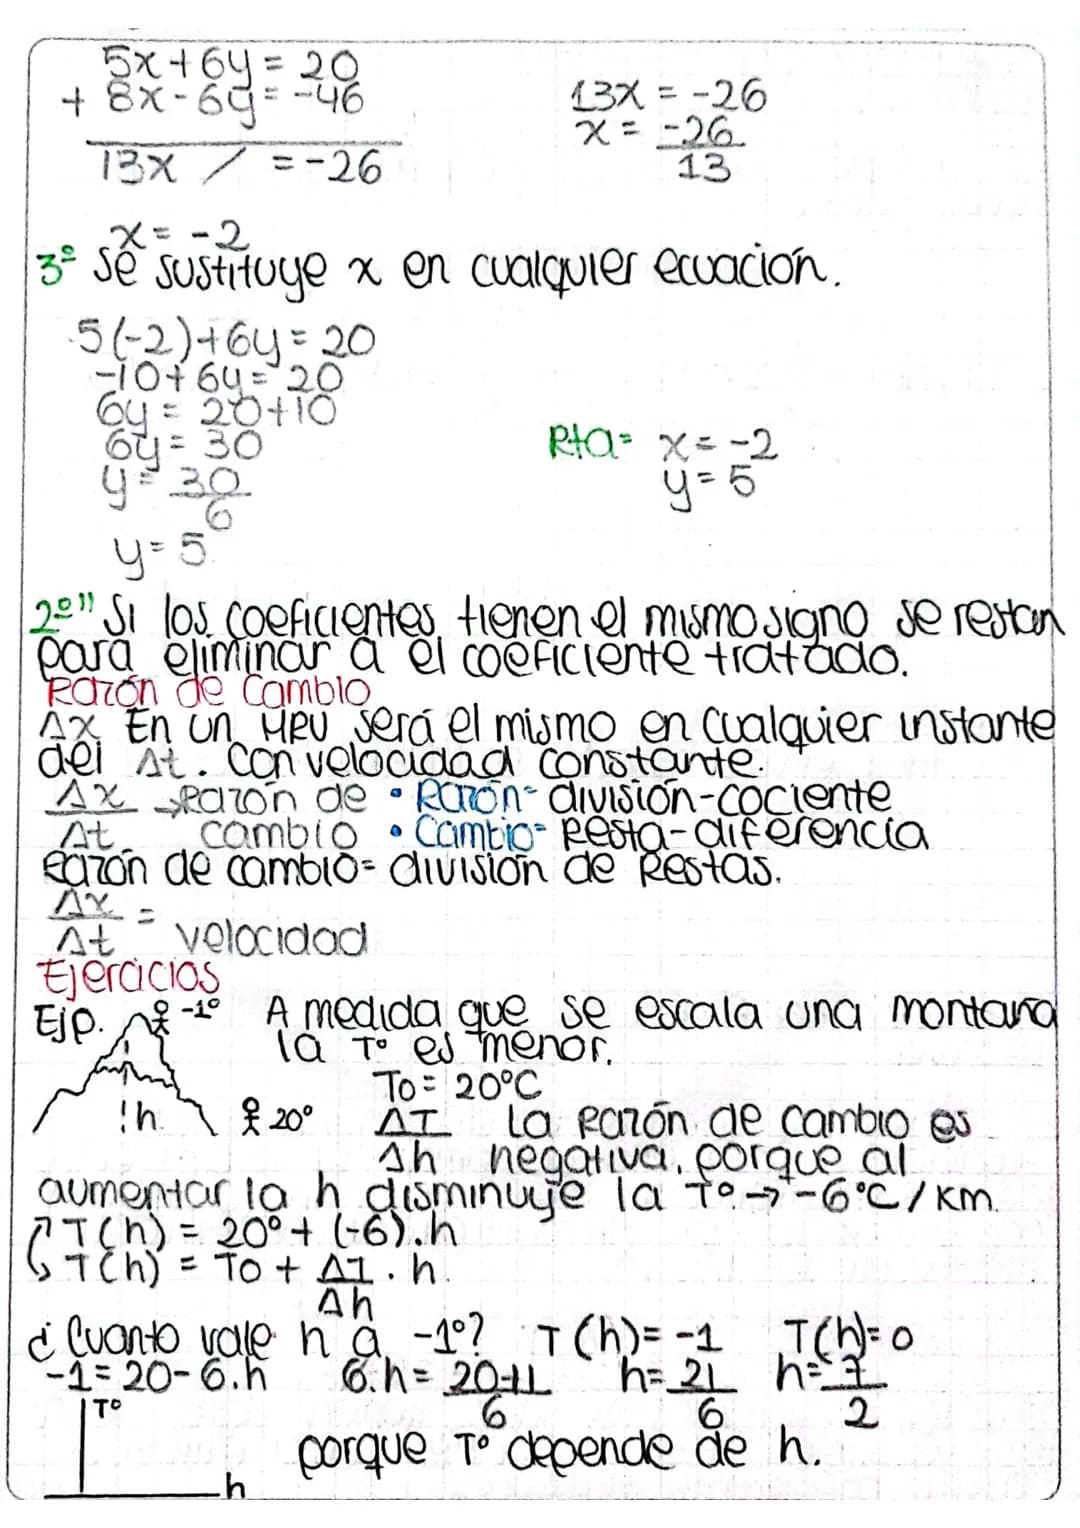 5x+6y = 20
+ 8x-6y = -46
13x / = -26
13x = -26
x = -26
13
x = -2
3º se sustituye x en cualquier ecuación.
5(-2)+6y = 20
-10+6y = 20
6y = 20+10
6y = 30
y = 30
6
y = 5
Rta= x = -2
y = 5
2º" Si los coeficientes tienen el mismo signo se restan
para eliminar a el coeficiente tratado.
Razón de Cambio
Δx En un MRU será el mismo en cualquier instante
del Δt. Con velocidad constante.
Δx → Razón de • Razón- división-cociente
Δt cambio • Cambio- Resta-diferencia
Razón de cambio= división de Restas.
Δx =
Δt velocidad
Ejercicios
Ejp. -1º A medida que se escala una montaña
la Tº es menor.
To = 20ºC
h 20º ΔT La Razón de cambio es
Δh negativa, porque al
aumentar la h disminuye la Tº → -6ºC/km.
T(h) = 20º + (-6).h
T(h) = To + ΔT . h
Δh
¿Cuanto vale h a -1º? T(h)= -1 T(h)= 0
-1 = 20-6.h 6.h = 20+1 h= 21 h= 7
6 6 2
Tº
porque Tº depende de h.
h